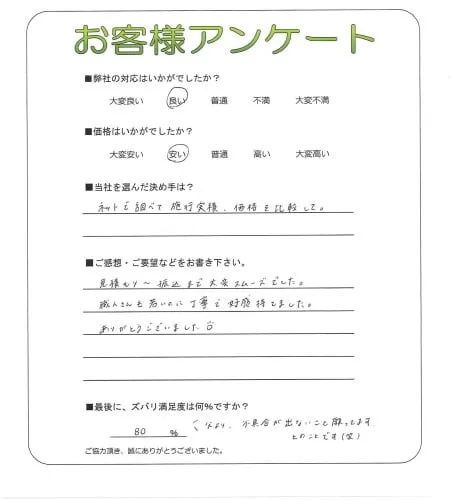 お客様アンケート
■弊社の対応はいかがでしたか？
大変良い 良い 普通 不満 大変不満
■価格はいかがでしたか？
大変安い 安い 普通 高い 大変高い
■当社を選んだ決め手は？
ネットで調べて 施行実積、価格を比較して。
■ご感想・ご要望などをお書き下さい。
見積もり～振込まで大変スムーズでした。
職人さんも若いのに丁寧で好感持てました。
ありがとうございました
■最後に、ズバリ満足度は何％ですか？
80 ％ 不具合が出ないこと願ってます
とのことです(笑)
ご協力頂き、誠にありがとうございました。